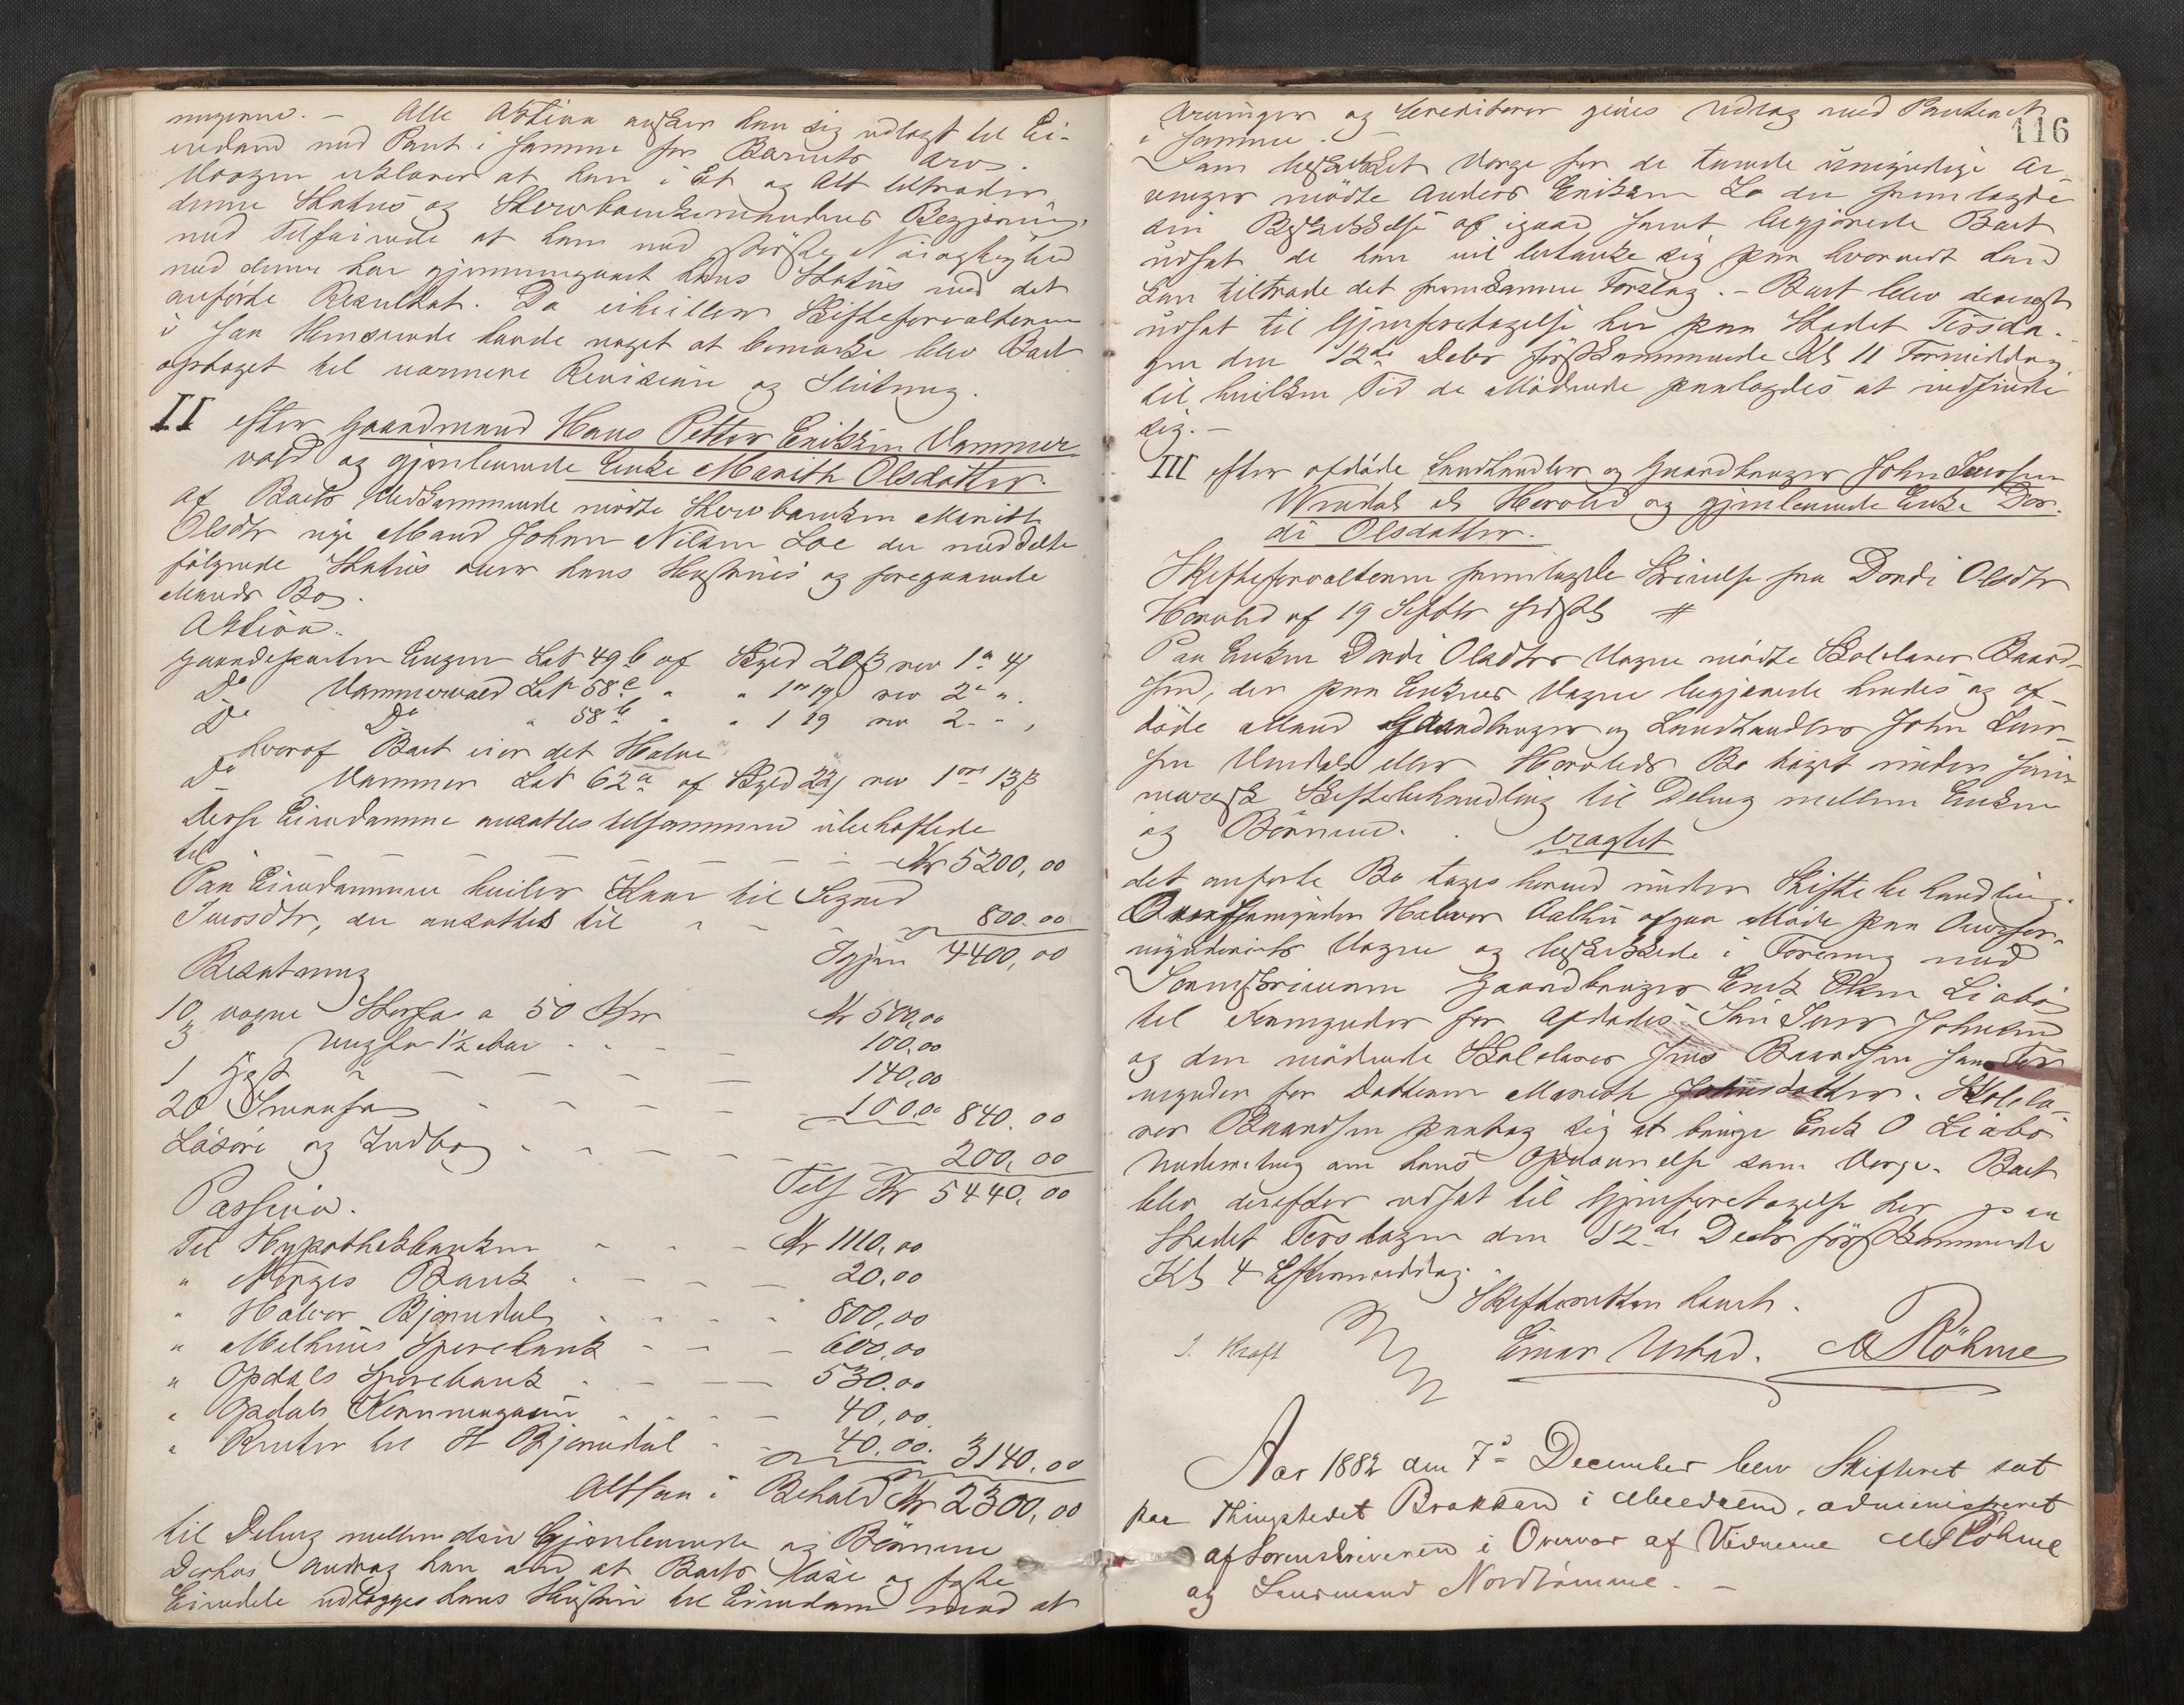 Alle Aktiva ønsker han sig udlagt til Ei-
endom mod Pant i samme for Barnets Arv.
Værgen erklærer at han i Et og Alt tiltræder
denne Status og Begjæring,
med Tilføiende at han med største Nøiagtighed
med denne har gjennemgaaet hans Status med det
anførte Resultat. Da Skifteforvalteren
i saa Henseende havde noget at bemærke blev Boet
optaget til nærmere Revision og Slutning.
II efter Gaardmand Hans Petter Eriksen Vammer
vold og gjenlevende Enke Marith Olsdatter.
af Boets Vedkommende mødte Marith
Olsdtr nye Mand Johan Nilsen Loe der meddelte
følgende Status over hans Hustrues og foregaaende
Mands Bo.
Aktiva.
Gaardeparten Engen Lab 49 b af Skyld 20 β
Do Vammervold Lab 58 c " "
Do Do " 58 b " "
hvoraf Boet eier det Halve
Do Vammer Lab 62 a af Skyld
Disse Eiendomme ansattes tilsammen ubehæftede
til - - - - - - Kr 5200,00
Paa Eiendommene hviler Kaar til Sigrid
Iversdtr, der ansattes til - - - 800.00
Igjen 4400,00
Besætning
10 voxne Storfæ a 50 Kr Kr 500,00
3 Ungfæ 1½ Aar - - - 100,00
1 Hest " - - - 140,00
20 Smaafæ - - - - 100,00 840.00
Løsøre og Indbo - - - - 200,00
Tils Kr 5440,00
Passiva.
Til Hypothekbanken - - - Kr 1110,00
" Norges Bank - - - 20,00
" Halvor Bjørndal - - - 800,00
" Melhuus Sparebank - - - 600,00
" Opdals Sparebank - - - 530.00
" Opdals Kornmagasin - - - 40,00
" Renter til H Bjørndal - - 40.00. 3140.00
Altsaa i Behold Kr 2300,00
til Deling mellem den Gjenlevende og Børnene
Derhos androg han om at Boets løse og faste
Eiendele udlægges hans Hustru til Eiendom mod at
116
Arvinger og Creditorer gives Udlæg med Panteret
i samme.
Som beskikket Værge for de umyndige Ar-
vinger mødte Anders Eriksen Lo der fremlagde
sin Beskikkelse af igaar samt begjærede Boet
udsat da han vil betænke sig paa hvorvidt han
kan tiltræde det fremkomne Forslag. - Boet blev dernæst
udsat til Gjenforetagelse her paa Stedet Tirsda-
gen den 12te Decbr førstkommende Kl 11 Formiddag
til hvilken Tid de Mødende paalagdes at indfinde
sig. -
III efter afdøde Landhandler og Gaardbruger John Iversen
Vindal og gjenlevende Enke Dor-
di Olsdatter.
Skifteforvalteren fremlagde Skrivelse fra Dordi Olsdtr
af 19 Septbr sidstl #
Paa Enken Dordi Olsdtrs Vegne mødte Skolelærer Baard-
sen, der paa Enkens Vegne begjærede hendes og af-
døde Mand Gaardbruger og Landhandler John Iver-
sen Vindals Bo taget under sum-
marisk Skiftebehandling til Deling mellem Enken
og Børnene. eragtet
det anførte Bo tages herved under Skiftebehandling.
Halvor Aalbu afgav Møde paa Overfor-
mynderiets Vegne og beskikkede i Forening med
Sorenskriveren Gaardbruger Erik Olsen Liabø
til Formynder for Afdødes Søn Iver Johnsen
og den mødende Skolelærer Jens Baardsen som For-
mynder for Datteren Marith Johnsdatter. Skolelæ-
rer Baardsen paatog sig at bringe Erik O Liabø
Underretning om hans Opnævnelse som Værge. Boet
blev derefter udsat til Gjenforetagelse her paa
Stedet Tirsdagen den 12te Decbr førstkommende
Kl 4 Eftermiddag.
Skifteretten hævet.
J. Kraft Einar Urstad. M Röhme
Aar 1882 den 7de December blev Skifteret sat
paa Thingstedet Brakkan i Meldalen, administreret
af Sorenskriveren i Overvær af Vidnerne M Röhme
og Lensmand Nordtømme. -